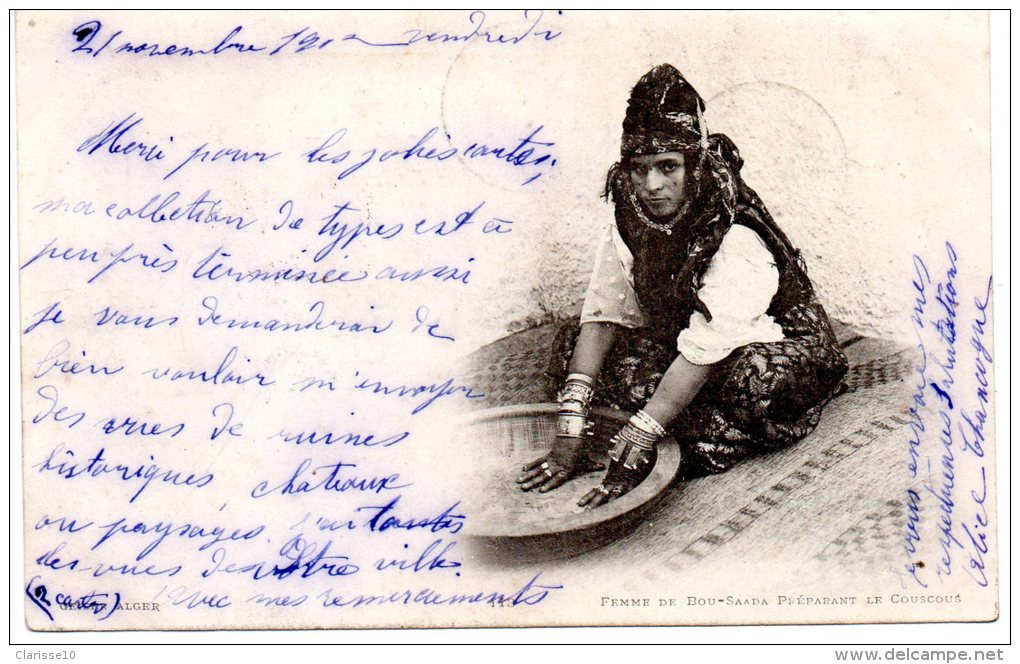 21 novembre 190 vendredi
Merci pour les jolies cartes,
ma collection de types est à
peu près terminée aussi
je vous demanderai de
bien vouloir m'envoyer
des vues de ruines
historiques, chateaux
ou paysages. j'ai toutes
les vues de votre ville.
(2 cartes) Avec mes remerciements
Je vous envoie mes
respectueuses salutations
Alice
ALGER
FEMME DE BOU-SAADA PRÉPARANT LE COUSCOUS
Clarisse10
http://www.delcampe.net